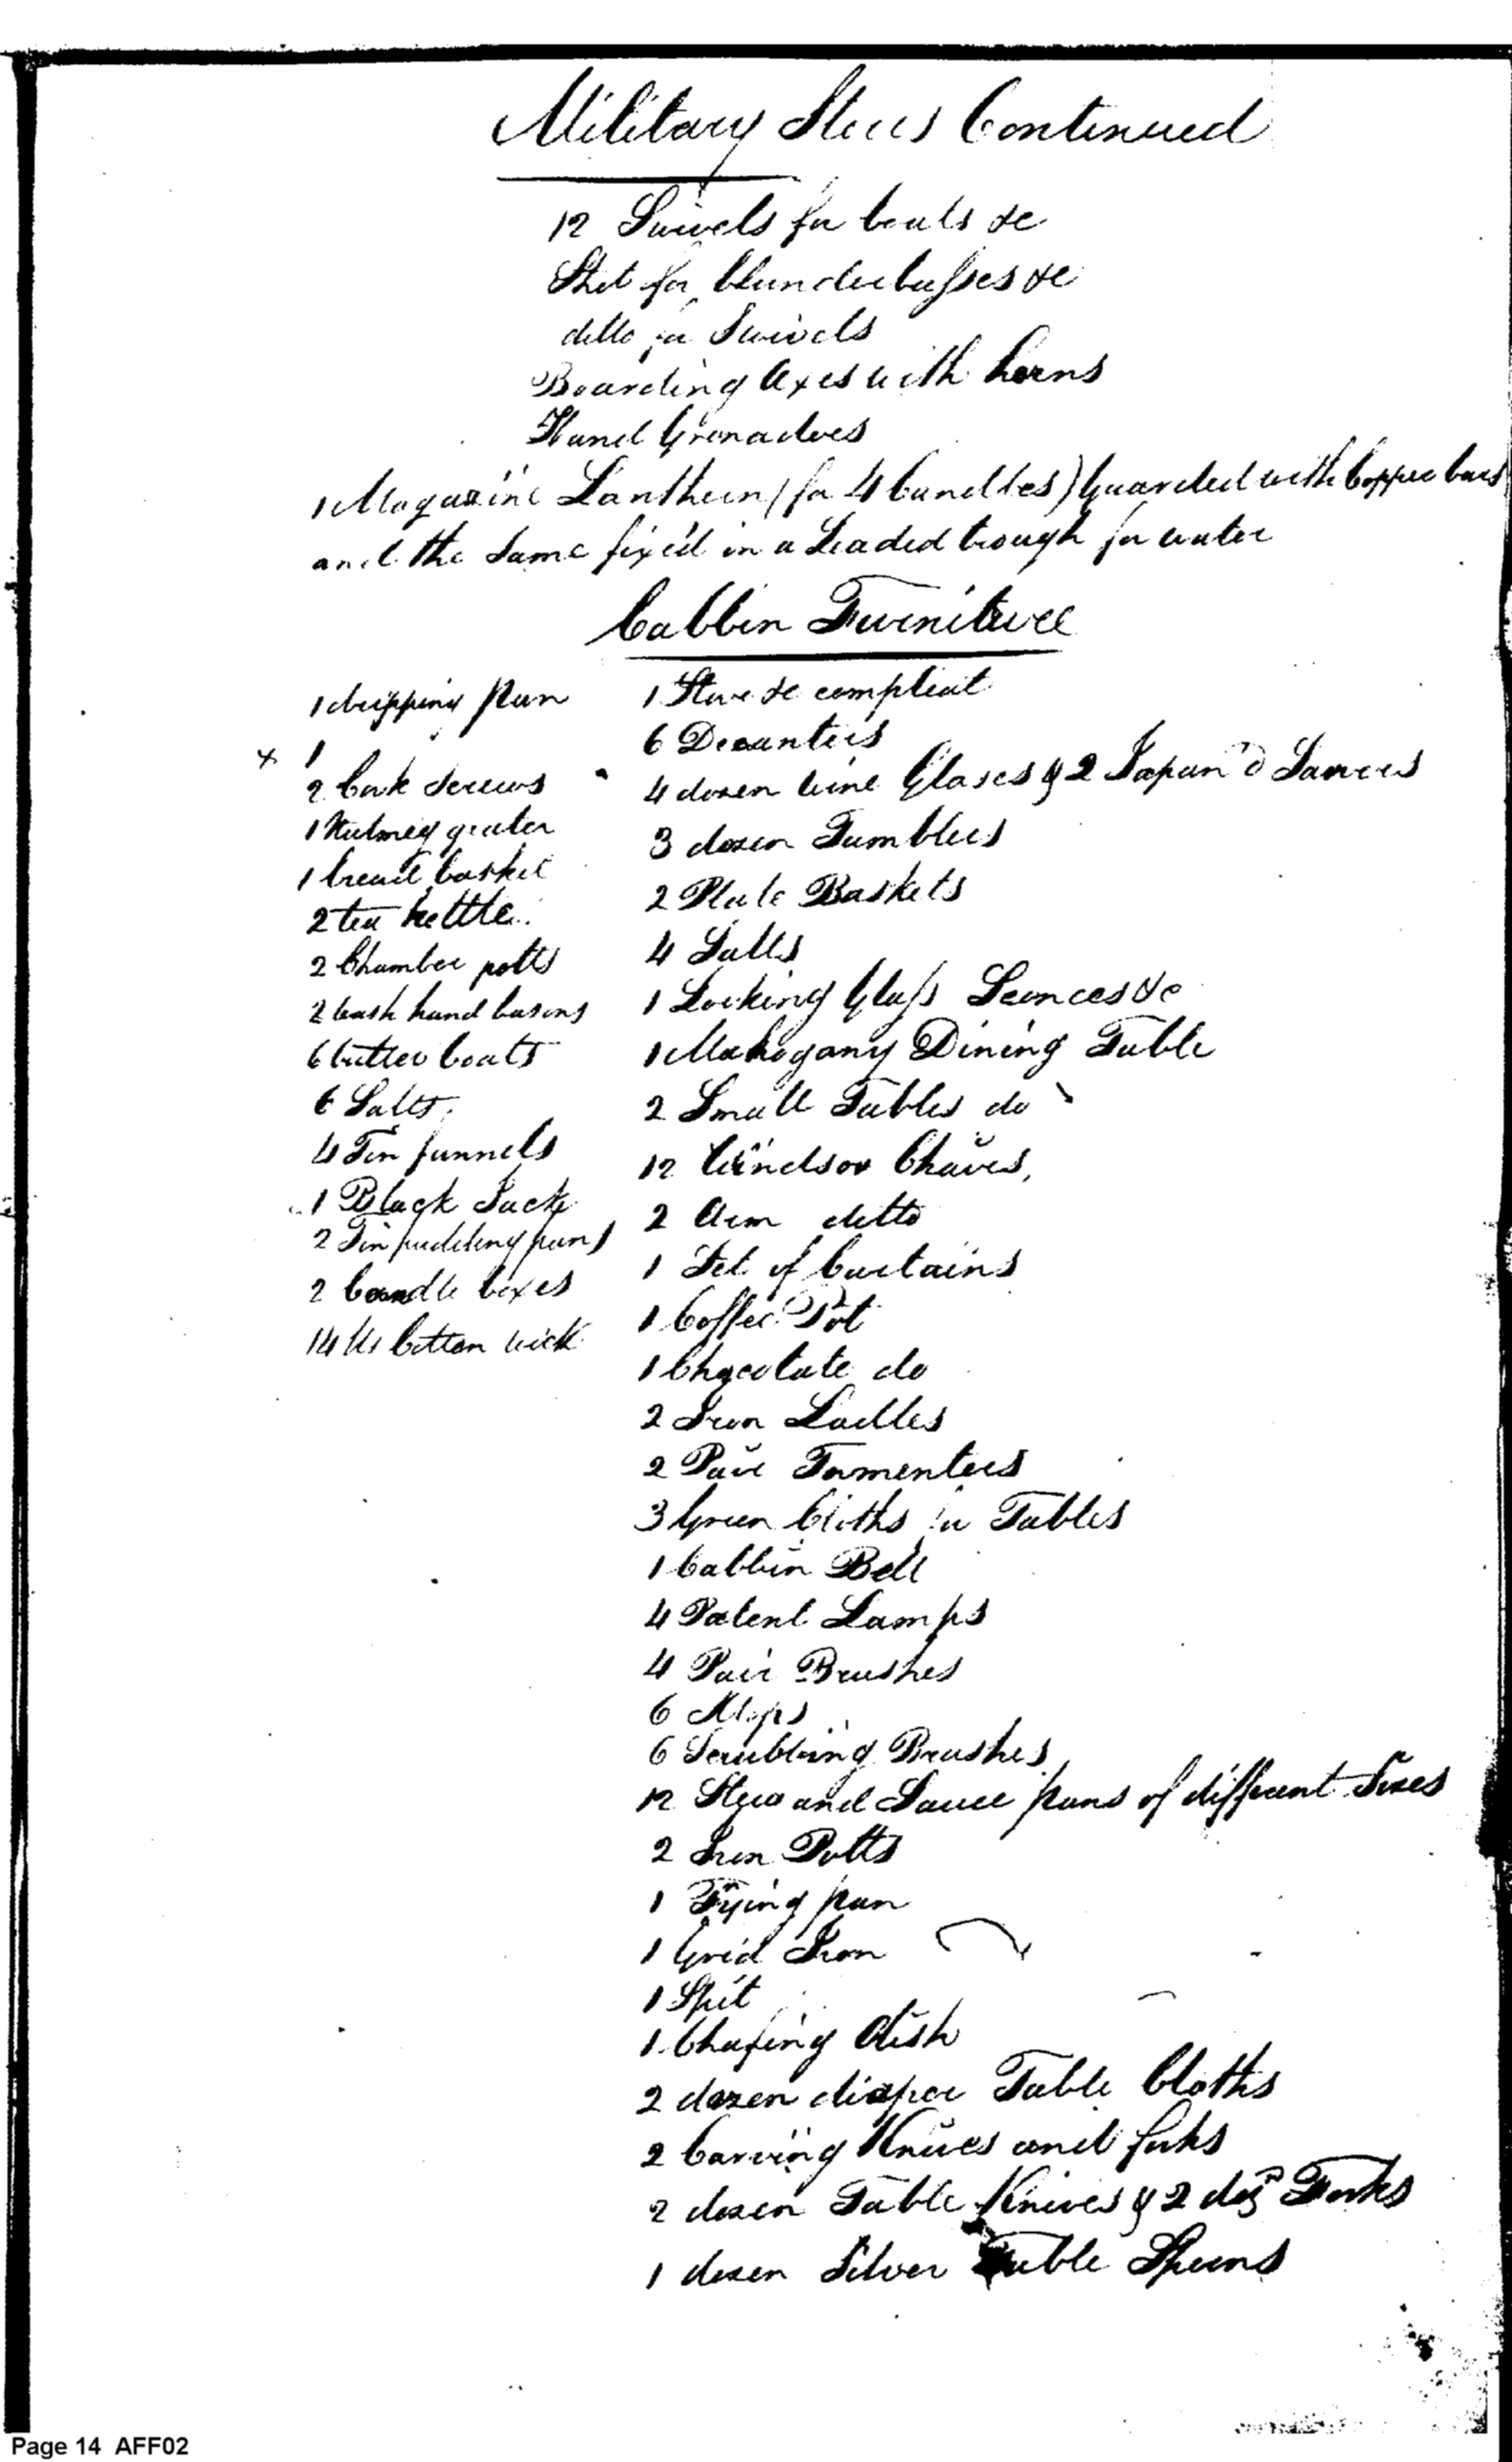 Military Stores Continued
12 Swivels for boats &c
Shot for blunderbusses &c
ditto for Swivels
Boarding Axes with horns
Hand Grenadoes
1 Magazine Lanthern (for 4 Candles) Guarded with Copper bars
and the Same fixed in a Leaded trough for water
Cabbin Furniture
1 dripping pan
x 1
2 Cork Screws
1 Nutmeg grater
1 bread basket
2 tea kettle
2 Chamber potts
2 wash hand basons
6 butter boats
6 Salts
4 Tin funnels
1 Black Jack
2 Tin pudding pans
2 Candle boxes
14 lbs Cotton wick
1 Stove &c compleat
6 Decanters
4 dozen Wine Glases & 2 Japan'd Sarvers
3 dozen Tumblers
2 Plate Baskets
4 Salts
1 Looking Glass Sconces &c
1 Mahogany Dining Table
2 Small Tables do
12 Windsor Chairs,
2 Arm ditto
1 Set of Curtains
1 Coffee Pot
1 Chocolate do
2 Iron Ladles
2 Pair Tormenters
3 Green Cloths for Tables
1 Cabbin Bell
4 Patent Lamps
4 Pair Brushes
6 Mops
6 Scrubbing Brushes
12 Stew and Sauce pans of different Sizes
2 Iron Potts
1 Frying pan
1 Grid Iron
1 Spit
1 Chafing dish
2 dozen diaper Table Cloths
2 Carving Knives and forks
2 dozen Table Knives & 2 doz Forks
1 dozen Silver Table Spoons
Page 14 AFF02